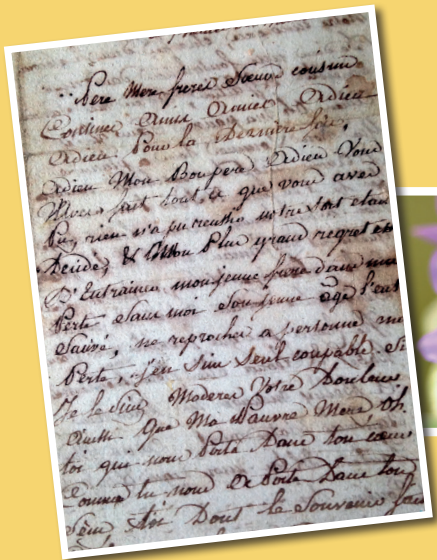 Père Mere freres Soeurs cousins
Cousines Amis Amies Adieu
Adieu Pour la Derniere fois,
Adieu Mon Bon pere Adieu Vous
Avez fait tout ce que vous avez
Pu, rien n'a pu reussir notre sort etait
Decidé, & Mon Plus grand regret est
D'Entrainer mon jeune frere dans ma
Perte Sans moi Son jeune age l'eut
Sauvé, ne reprochez a personne ma
Perte, j'en suis seul coupable Si
Je le suis Moderez Votre Douleur
Ainsi Que Ma Pauvre Mere, Oh
toi qui nous Porta Dans ton coeur
Comme tu nous a Porté Dans ton
Sein Toi Dont le Souvenir